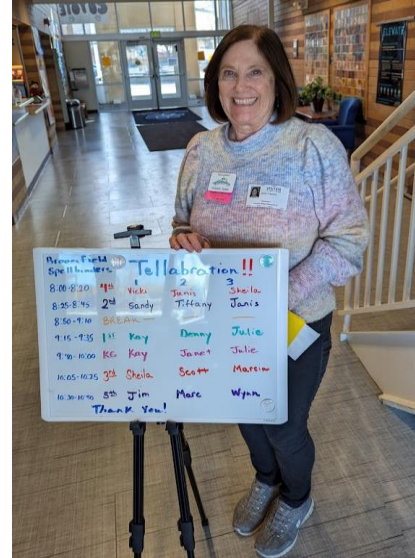 Broomfield
Spellbinders Tellabration!!
1 2 3
8:00-8:20 4th Vicki Janis Sheila
8:25-8:45 2nd Sandy Tiffany Janis
8:50-9:10 BREAK
9:15-9:35 1st Kay Denny Julie
9:40-10:00 KG Kay Janet Julie
10:05-10:25 3rd Sheila Scott Marsia
10:30-10:50 5th Jim Marc Wynn
Thank You!
VISITOR
ELEVATE